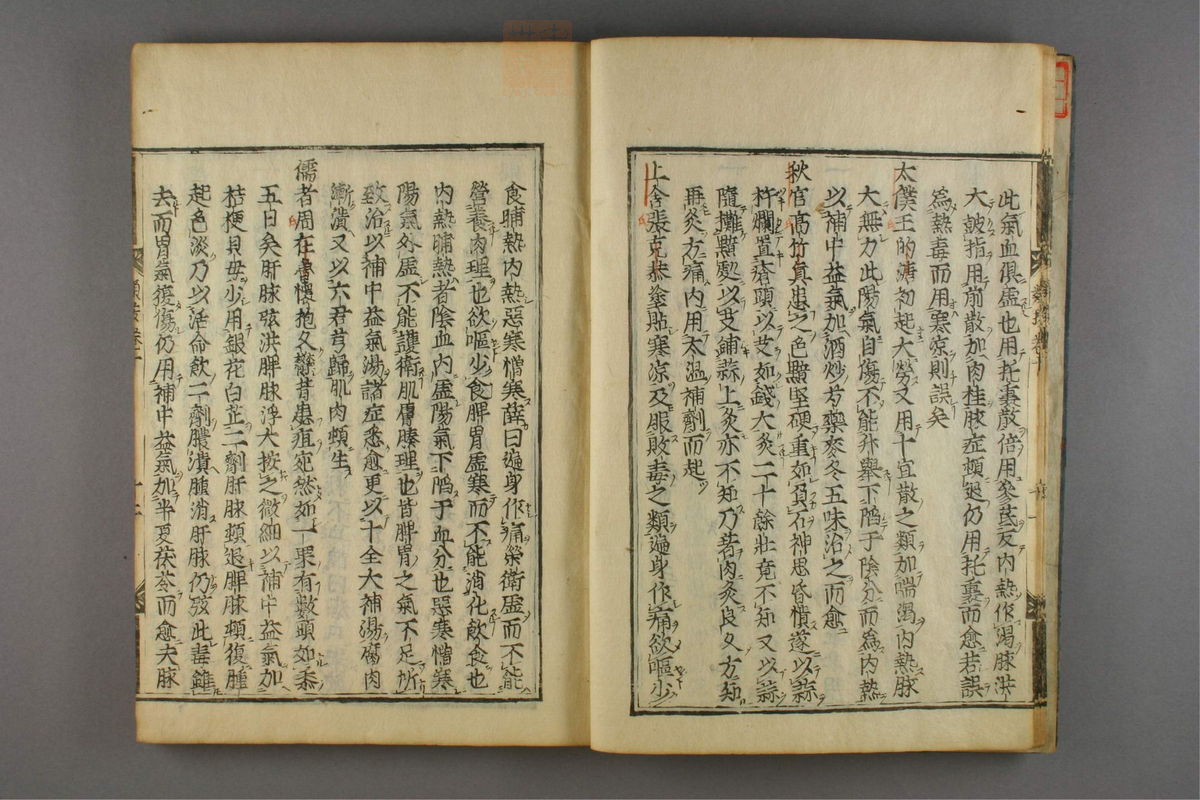 此氣血俱虛也用托裏散倍用參芪反內熱作渴脉洪
大皷指用前散加肉桂脉症頓退仍用托裏而愈若誤
為熱毒而用寒凉則誤矣
太僕王的塘初起大勞又用十宣散之類加喘渴內熱脉
大無力此陽氣自傷不能升舉下陷于陰分而為內熱
以補中益氣加酒炒芍藥麥冬五味治之而愈
秋官高竹真患之色黯堅硬重如負石神思昏憒遂以蒜
杵爛置瘡頭以艾如錢大灸二十餘壯竟不知又以蒜
隨攤黯處以艾鋪蒜上灸亦不知乃着肉灸良久方知
再灸方痛內用大温補劑而起
上舍張克恭塗貼寒凉及服敗毒之類遍身作痛欲嘔少
食晡熱內熱惡寒憎寒薛曰遍身作痛榮衛虛而不能
營養肉理也欲嘔少食脾胃虛寒而不能消化飲食也
內熱晡熱者陰血內虛陽氣下陷于血分也惡寒憎寒
陽氣外虛不能護衛肌膚腠理也皆脾胃之氣不足所
致治以補中益氣湯諸症悉愈更以十全大補湯腐肉
漸潰又以六君芎歸肌肉頓生
儒者周在魯懷抱久鬱背患疽宛然如一粟有數頭如黍
五日矣肝脉弦洪脾脉浮大按之微細以補中益氣加
桔梗貝母少用銀花白芷二劑肝脉頓退脾脉頓復腫
起色淡乃以活命飲二劑膿潰腫消肝脉仍弦此毒雖
去而胃氣復傷仍用補中益氣加半夏茯苓而愈夫脉